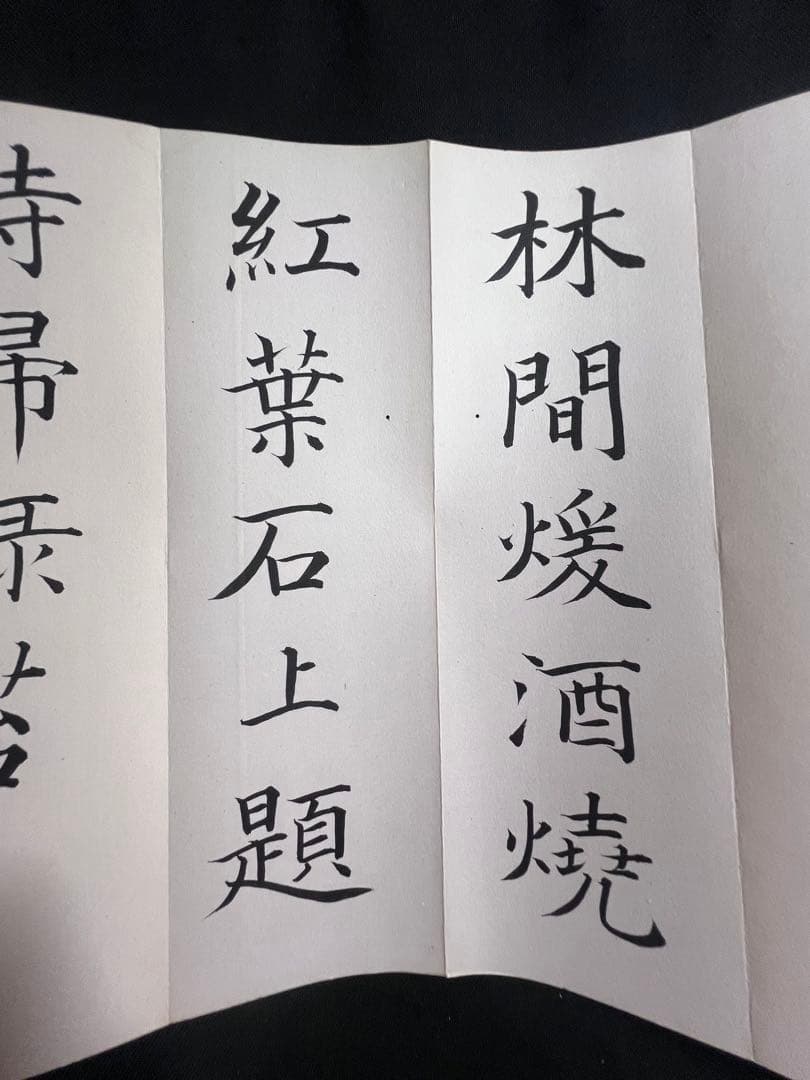 林間煖酒燒
紅葉石上題